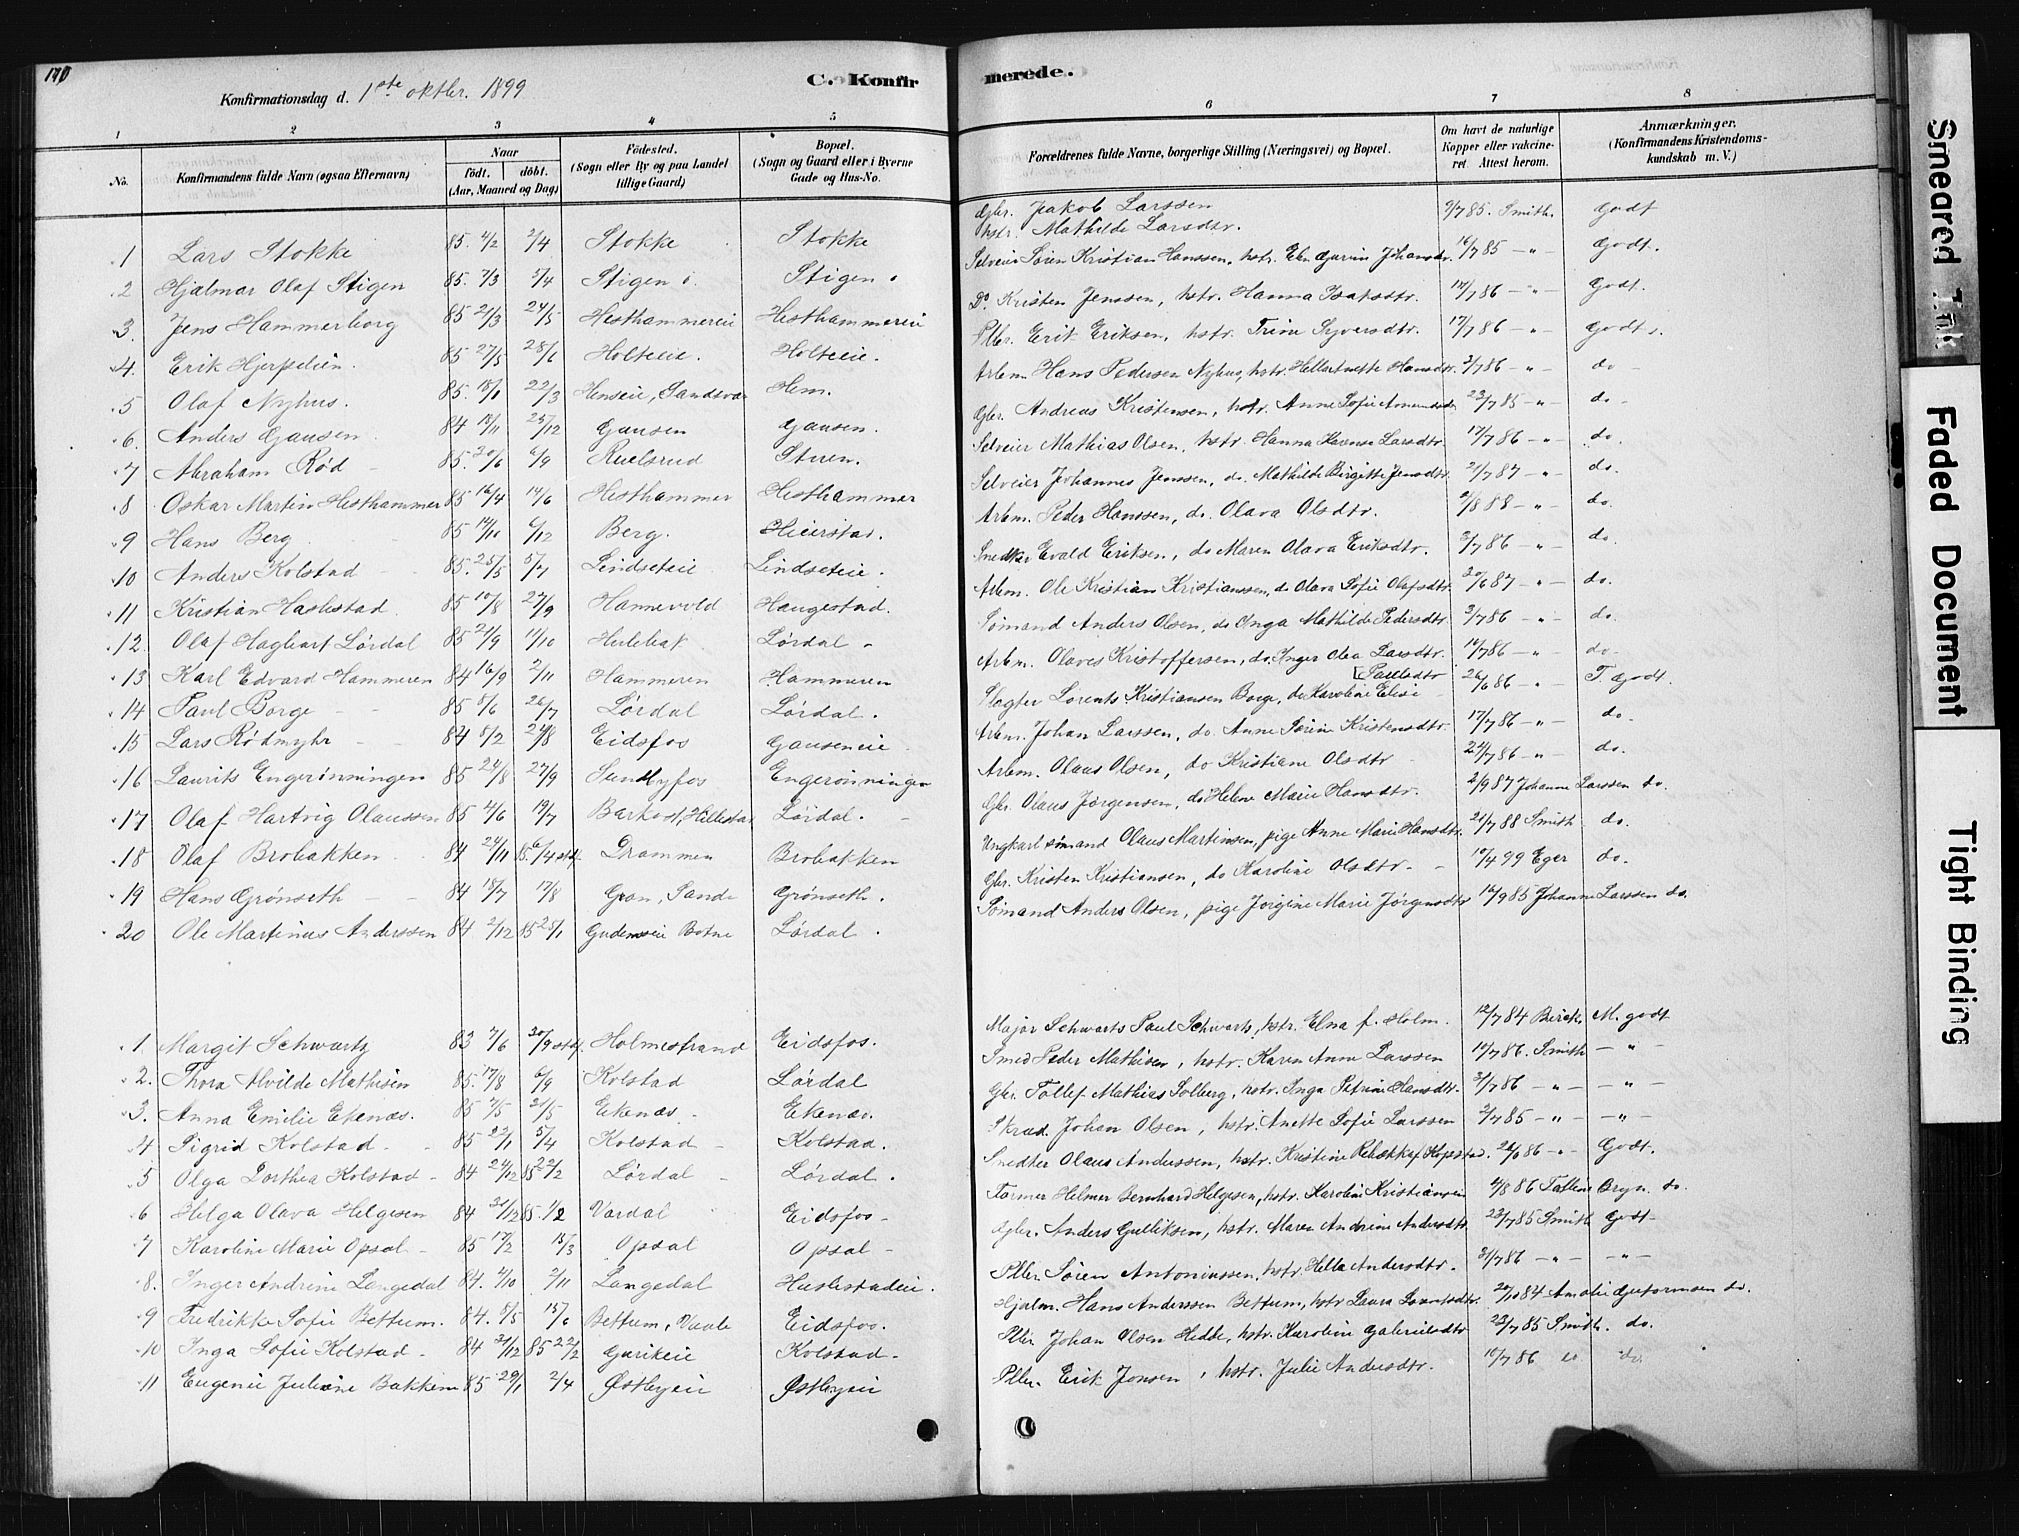 170
C. Konfir merede.
Konfirmationsdag d. 1ste oktbr. 1899
1 2 3 4 5 6 7 8
No. Konfirmandens fulde Navn (ogsaa Efternavn) Naar födt. döbt. (Aar, Maaned og Dag) Födested. (Sogn eller By og paa Landet tillige Gaard) Bopæl. (Sogn og Gaard eller i Byerne Gade og Hus-No. Forældrenes fulde Navne, borgerlige Stilling (Næringsvei) og Bopæl. Om havt de naturlige Kopper eller vakcineret. Attest herom. Anmærkninger. (Konfirmandens Kristendomskundskab m. V.)
1 Lars Stokke 85. 4/2 2/4 Stokke Stokke Gbr. Jakob Larssen hstr. Mathilde Larsdtr. 9/7 85. Smith. Godt
2 Hjalmar Olaf Stigen 85. 7/3 5/4 Stigen Stigen Selveier Søren Kristian Hanssen, hstr. 16/7 85 — „ Godt.
3. Jens Hammerborg 85 21/3 24/5 Hesthammereie Hesthammereie Do. Kristen Jenssen, hstr. Hanna Isaksdtr. 17/7 86 — „ — Godt.
4. Erik Hjerpelien 85 27/5 28/6 Holteeie. Holteeie. Pller. Erik Eriksen, hstr. Trine Syversdtr. 17/7 86 — „ Godt.
5 Olaf Nyhus. 85. 22/3 Henseie, Sandsvær Hem. Arbm. Hans Pedersen Nyhus, hstr. Hansdtr. 3/7 86 — „ — do
6. Anders Gausen 84 18/11 25/12 Gausen Gausen. Gbr. Andreas Kristensen, hstr. Anne Sofie 23/7 85 — „ — do
7 Abraham Rød 85. 20/6 6/9 Ruelsrud Stuen. Selveier Mathias Olsen, hstr. Hanna Larsdtr. 17/7 86 — „ do.
8 Oskar Martin Hesthammer 85 16/4 14/6 Hesthammer Hesthammer Selveier Johannes Jenssen, do. Mathilde Birgitte Jensdtr. 21/7 87 — „ do.
9 Hans Berg 85 14/10 6/12 Berg. Heierstad. Arbm. Peder Hanssen, do. Olava Olsdtr. 2/8 88 — „ do.
10 Anders Kolstad 85. 25/5 5/7 Lindseteie Lindseteie. Snedker Evald Eriksen, do Maren Olava Eriksdtr. 3/7 86 — „ do.
11 Kristian Haslestad 85 10/8 27/9 Hannevold Haugestad. Arbm. Ole Kristian Kristianssen, do Olava Sofie Olafsdtr. 20/6 87 — „ do.
12. Olaf Hagbart Lørdal 85 21/9 11/10 Hulebak Lørdal Sømand Anders Olsen, do Inga Mathilde Pedersdtr. 3/7 86 — „ do.
13 Karl Edvard Hammeren 84 16/9 2/11 Hammeren Hammeren Arbm. Olaves Kristoffersen, do. Inger Olea Larsdtr. 16/7 86 — „ do
14 Paul Borge 85 5/6 26/7 Lørdal Lørdal. Slagter Lorents Kristiansen Borge, do Karoline Elise [Paulsdtr 26/6 86 — „ T. Godt.
15 Lars Rødmyhr 84 8/2 24/8 Eidsfos Gauseneie Arbm. Johan Larssen, do. Anne Sørine Kristensdtr. 17/7 86 — „ do.
16 Laurits Engerønningen 85 24/8 27/9 Sundbyfos Engerønningen Arbm. Olaus Olsen, do Kristiane Olsdtr 24/7 86 — „ do.
17 Olaf Hartvig Olaussen 85 4/6 19/7 Barkost, Hillestad Lørdal. Gbr. Olaus Jørgensen, do Helene Marie Hansdtr. 2/9 87 Johanne Larssen do.
18 Olaf Brobakken 84 24/11 85. 6/4 stdf. Drammen Brobakken Ungkarl sømand Olaus Martinsen, pige Anne Marie Hansdtr. 21/7 88 Smith do.
19 Hans Grønseth 84 18/7 17/8 Gran, Sande Grønseth. Gbr. Kristen Kristiansen, do Karoline Olsdtr. 10/4 99 Eger do.
20 Ole Martinus Anderssen 84 2/12 85 25/1 Botne Lørdal. Sømand Anders Olsen, pige Jørgine Marie Jørgensdtr 16/9 85 Johanne Larssen do.
1. Margit Schwartz 83 7/6 30/9 stdf. Holmestrand Eidsfos. Major Schwarts Paul Schwarts, hstr. Elna f. Holm. 12/7 84 Birch, M. godt
2. Thora Alvilde Mathisen 85. 17/8 6/9 Kolstad Lørdal Smed Peder Mathisen, hstr. Karen Anne Larssen 14/7 86. Smith — „ —
3. Anna Emilie Ekenæs. 85 7/5 21/5 Ekenæs. Ekenæs. Gbr. Tollef Mathias Solberg, hstr. Inga Petrine Hansdtr. 3/7 86 — „ — — „ —
4 Sigrid Kolstad 85 22/1 5/4 Kolstad Kolstad. Skræd. Johan Olsen, hstr. Anette Sofie Larssen 3/7 85 — „ — — „ —
5 Olga Dorthea Kolstad 84 24/12 85 22/2 Lørdal Lørdal. Snedker Olaus Anderssen, hstr. Kristine Rebekka 26/6 86 — „ — Godt.
6 Helga Olava Helgesen 84 31/12 85. 1/2 Vardal Eidsfos Former Helmer Bernhard Helgesen, hstr. Karoline Kristiansen 4/8 86 Bryn. do.
7 Karoline Marie Opsal 85 17/2 15/3 Opsal Opsal Gbr. Anders Gulliksen, hstr. Maren Andrine Andersdtr. 23/7 85 Smith Godt
8. Inger Andrine Langedal 84. 4/10 2/11 Langedal Haslestadeie. Pller. Søren Antoniussen, hstr. Hella Andersdtr. 3/7 86 — „ — — „ —
9 Fredrikke Sofie Bettum. 84. 8/5 15/6 Bettum, Vaale Eidsfos. Hjælm. Hans Anderssen Bettum, hstr Laura 84 Amalie do.
10 Inga Sofie Kolstad 84 21/12 85 22/2 Gurikeie Kolstad Pller Johan Olsen Hedde, hstr. Karoline Gabrielsdtr 23/7 85 Smith. do.
11 Eugenie Juliane Bakken 85 29/1 2/4 Østbyeie Østbyeie Pller. Erik Jonsen, hstr. Julie Andersdtr. 10/7 86 do. do
Smeared Ink
Faded Document
Tight Binding